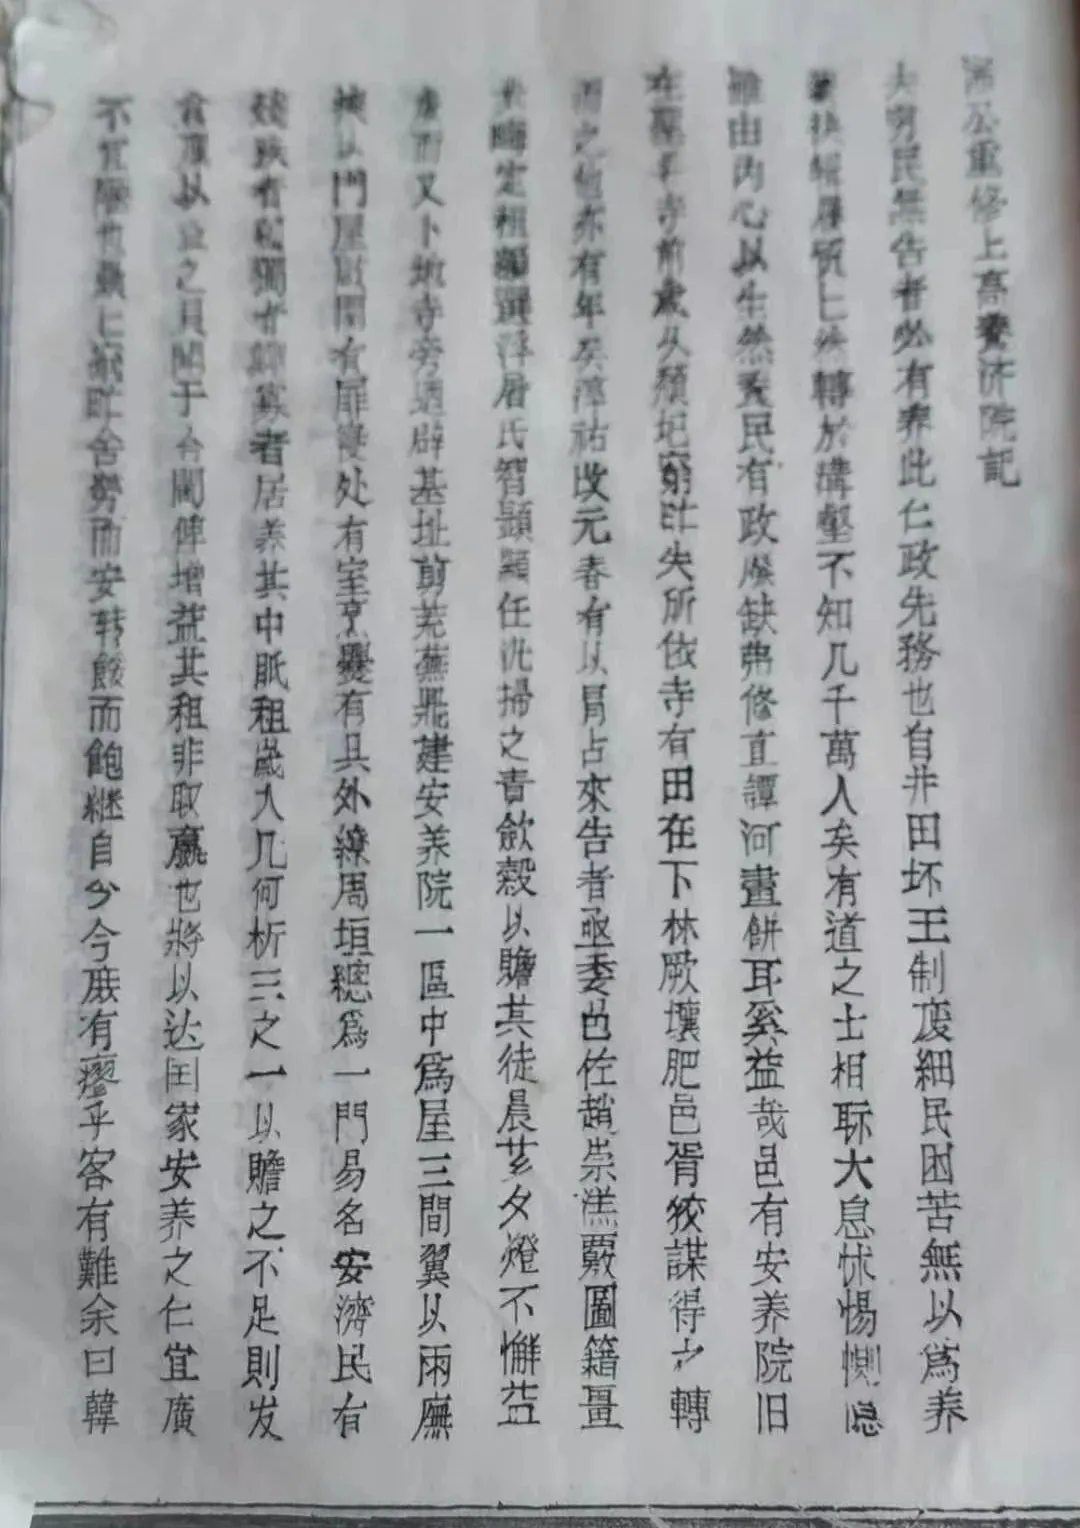 公重修上高養济院記
夫穷民無告者必有养此仁政先務也自井田坏王制废細民困苦無以爲养
扶縲屦質匕然轉於溝壑不知几千萬人矣有道之士相聎大息怵惕惻隠
雖由内心以生然養民有政废缺弗修直譚河畫餅耳奚益哉邑有安养院旧
在寺前歲久頹圮窮氓失所依寺有田在下林厥壤肥邑胥狡謀得之轉
而之他亦有年矣淳祐改元春有以冐占來告者亟委邑佐趙崇𣻌覈圖籍畺
畝定租額選浮屠氏智顕顓任汛掃之責斂穀以贍其徒晨芗夕燈不懈益
虔而又卜地寺旁廼辟基址剪荒蕪鼎建安养院一區中爲屋三間翼以兩廡
以門屋間有扉寝处有室烹爨有具外繚周垣總爲一門易名安濟民有
殘疾者惸獨者鰥寡者居养其中眂租嵗入几何析三之一以贍之不足則发
以之員于令閫俾增益其租非取嬴也將以达囯家安养之仁宜廣
不宜隘也氓舍勞而安转餒而飽継自今今厥有瘳乎客有難余曰韓